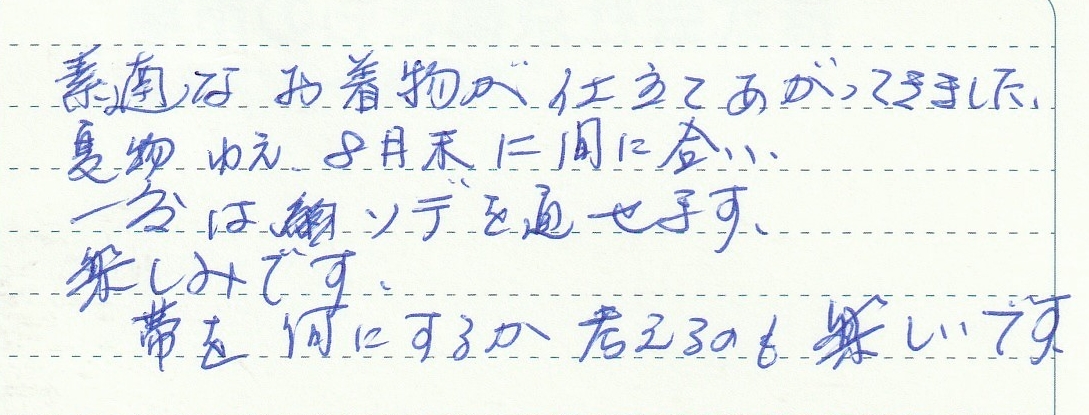 素適なお着物が仕立てあがってきました、
夏物ゆえ、8月末に間に合い、
一度はソデを通せます、
楽しみです、
帯を何にするか考えるのも楽しいです